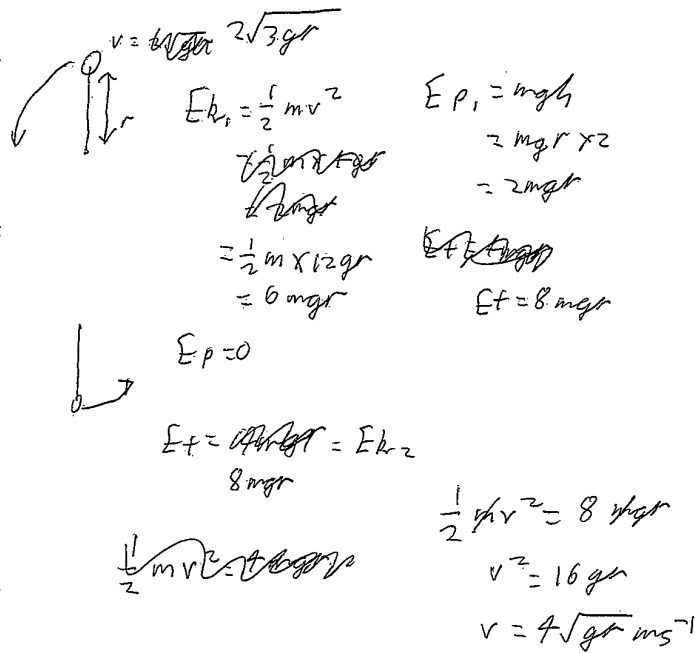 v = 2√3gr
r
Ek₁ = ½ mv²
= ½ m × 12gr
= 6mgr
Ep₁ = mgh
= mgr × 2
= 2mgr
Et = 8mgr
Ep = 0
Et = 8mgr = Ek₂
½ mv² = 8 mgr
v² = 16gr
v = 4√gr ms⁻¹